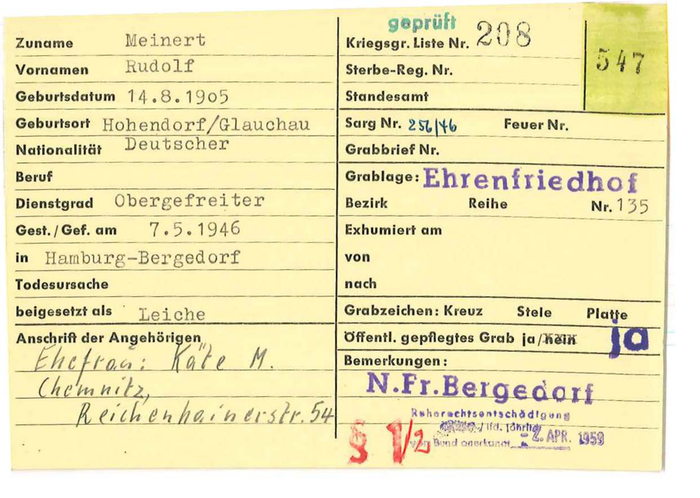 Zuname Meinert
Vornamen Rudolf
Geburtsdatum 14.8.1905
Geburtsort Hohendorf/Glauchau
Nationalität Deutscher
Beruf
Dienstgrad Obergefreiter
Gest./Gef. am 7.5.1946
in Hamburg-Bergedorf
Todesursache
beigesetzt als Leiche
Anschrift der Angehörigen
Ehefrau: Käte M.
Chemnitz,
Reichenhainerstr. 54
geprüft
Kriegsgr. Liste Nr. 208
547
Sterbe-Reg. Nr.
Standesamt
Sarg Nr. 256/46 Feuer Nr.
Grabbrief Nr.
Grablage: Ehrenfriedhof
Bezirk Reihe Nr. 135
Exhumiert am
von
nach
Grabzeichen: Kreuz Stele Platte
Öffentl. gepflegtes Grab ja/nein ja
Bemerkungen:
N.Fr.Bergedorf
Ruherechtsentschädigung
lfd. jährlich
vom Bund anerkannt - 2. APR. 1959
§ 1/2